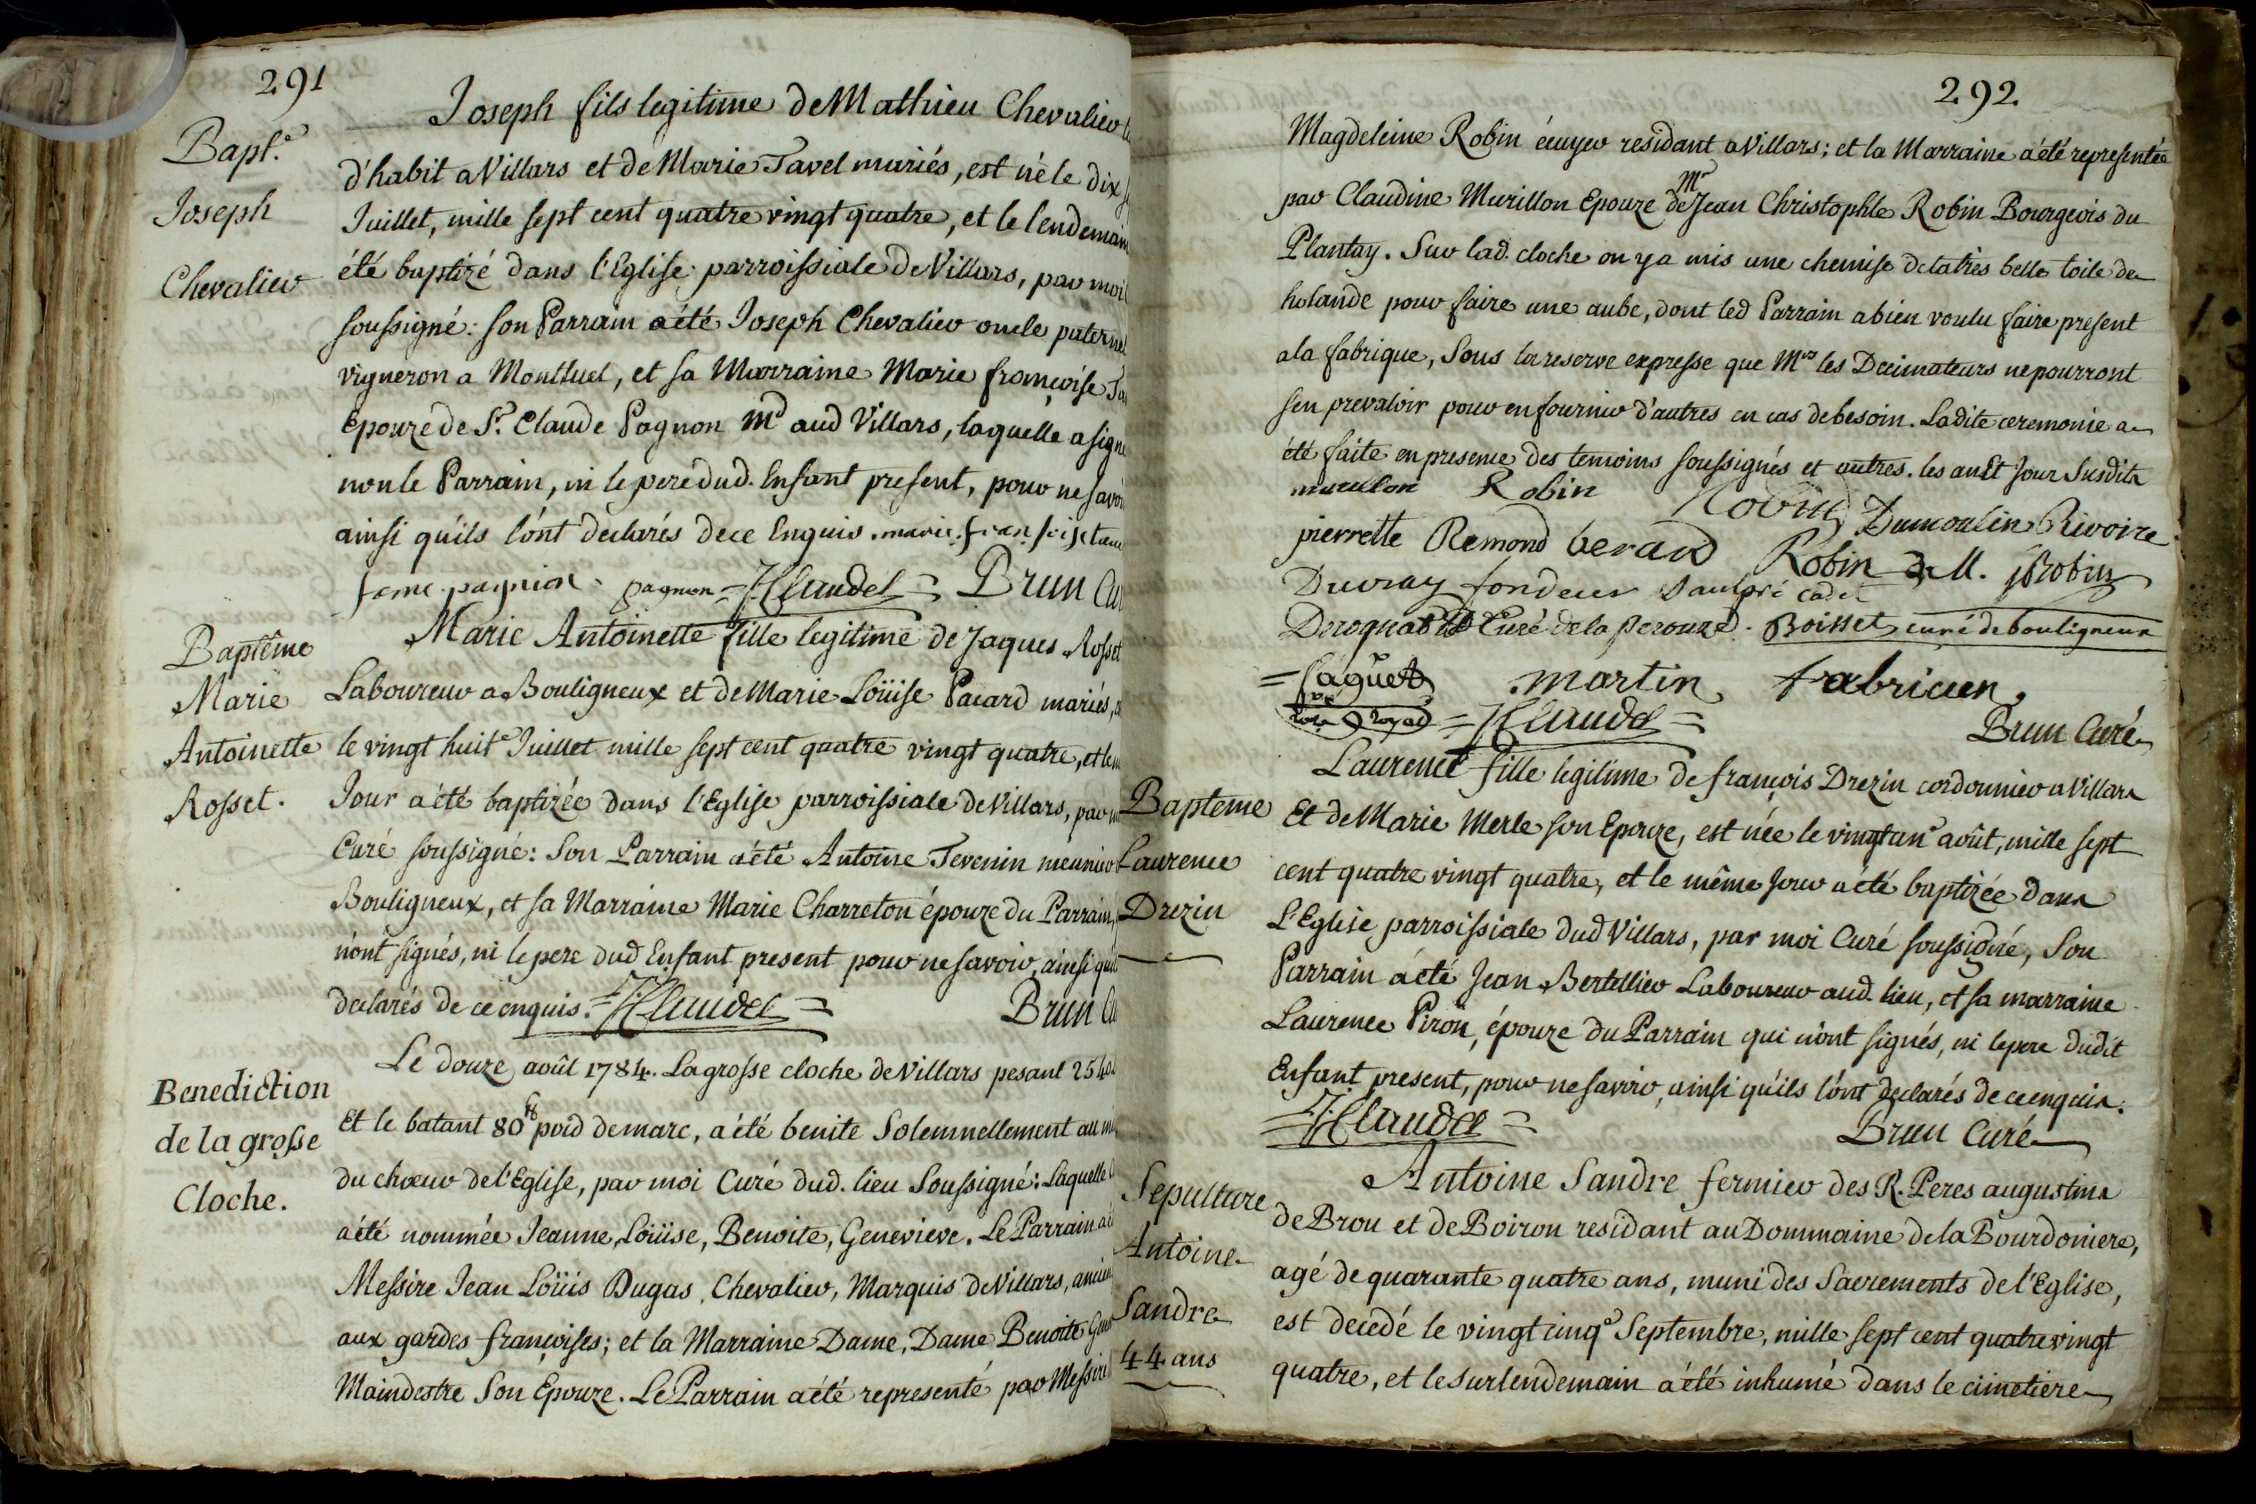 291
Bapt.e
Joseph
Chevalier
Joseph fils legitime de Mathieu Chevalier
d'habit a Villars et de Marie Tavel mariés, est né le dix
Juillet, mille sept cent quatre vingt quatre, et le lendemain
été baptizé dans l'Eglise parroissiale de Villars, par moi
soussigné: son Parrain a été Joseph Chevalier oncle paternel
vigneron a Montluel, et sa Marraine Marie françoise
Epouze de Sr. Claude Pagnon Md aud Villars, laquelle a signé
non le Parrain, ni le pere dud. Enfant present, pour ne savoir
ainsi qu'ils l'ont declarés de ce Enquis. marie franсoise
feme pagnion. pagnon =JClaudel= Brun
Baptême
Marie
Antoinette
Rosset.
Marie Antoinette fille legitime de Jaques Rosset
Laboureur a Bouligneux et de Marie Loüise Pacard mariés,
le vingt huite Juillet mille sept cent quatre vingt quatre, et le
Jour a été baptizée dans l'Eglise parroissiale de Villars, par
Curé soussigné: Son Parrain a été Antoine Tevenin meunier
Bouligneux, et sa Marraine Marie Charreton épouze du Parrain,
n'ont signés, ni le pere dud Enfant present pour ne savoir, ainsi
declarés de ce enquis. =JClaudel= Brun
Benediction
de la grosse
Cloche.
Le douze août 1784. La grosse cloche de Villars pesant 2540
Et le batant 80 lb poid de marc, a été benite Solemnellement au
du chœur de l'Eglise, par moi Curé dud. lieu Soussigné: Laquelle
a été nommée Jeanne, Loüise, Benoite, Genevieve. Le Parrain
Messire Jean Loüis Dugas, Chevalier, Marquis de Villars, ancien
aux gardes françoises; et la Marraine Dame, Dame Benoite
Maindestre Son Epouze. Le Parrain a été representé par Messire
292
Magdeleine Robin écuyer residant a Villars; et la Marraine a été representée
par Claudine Murillon Epouze de Mr Jean Christophle Robin Bourgeois du
Plantay. Sur lad. cloche on y a mis une chemise de la tres belle toile de
holande pour faire une aube, dont led Parrain a bien voulu faire present
a la fabrique, Sous la reserve expresse que Mrs les Decimateurs ne pourront
sen prevaloir pour en fournir d'autres en cas de besoin. La dite ceremonie a
été faite en presence des temoins soussignés et autres. les an Et Jour Susdits
murillon Robin Robin Dumoulin Rivoire
pierrette Remond berard Robin D. M. JRobin
Duvray fondeur cadet
Curé de la Perouze. Boisset curé de bouligneux
=faguet martin fabricien.
royal =JClaudel= Brun Curé
Bapteme
Laurence
Drezin
Laurence fille legitime de françois Drezin cordonnier a Villars
Et de Marie Merle son Epouze, est née le vingt une août, mille sept
cent quatre vingt quatre, et le même Jour a été baptizée dans
l'Eglise parroissiale dud Villars, par moi Curé soussigné, Son
Parrain a été Jean Bertellier Laboureur aud. lieu, et sa marraine
Laurence Piron, épouze du Parrain qui n'ont signés, ni le pere dudit
Enfant present, pour ne savoir, ainsi qu'ils l'ont declarés de ce enquis.
=JClaudel= Brun Curé
Sepulture
Antoine
Sandre
44 ans
Antoine Sandre fermier des R. Peres augustins
de Brou et de Boiron residant au Dommaine de la Bourdoniere,
agé de quarante quatre ans, muni des Sacrements de l'Eglise,
est decedé le vingt cinqe Septembre, mille sept cent quatre vingt
quatre, et le surlendemain a été inhumé dans le cimetiere